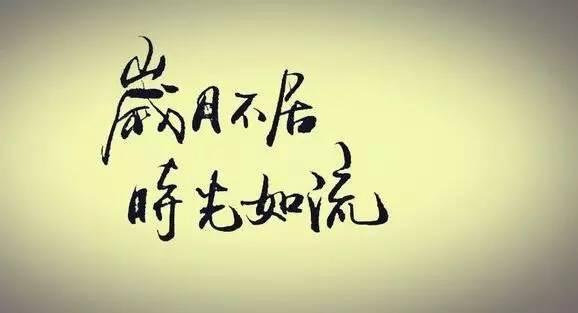 歲月不居
時光如流